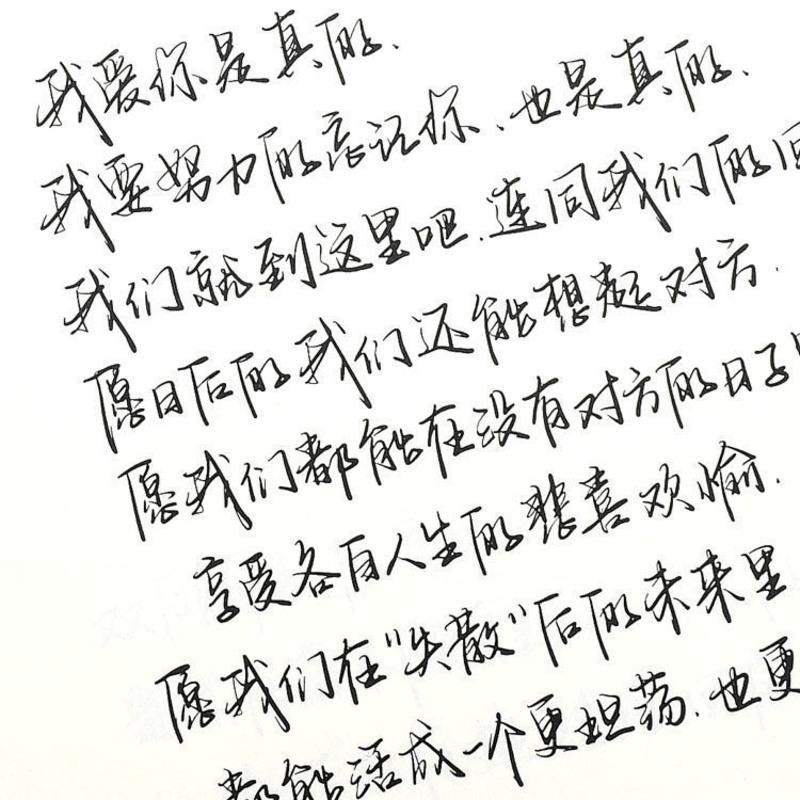 我爱你是真的、
我要努力的忘记你、也是真的、
我们就到这里吧、连同我们的回
愿日后的我们还能想起对方.
愿我们都能在没有对方的日子
享受各自人生的悲喜欢愉.
愿我们在"失散"后的未来里
都能活成一个更坦荡、也更